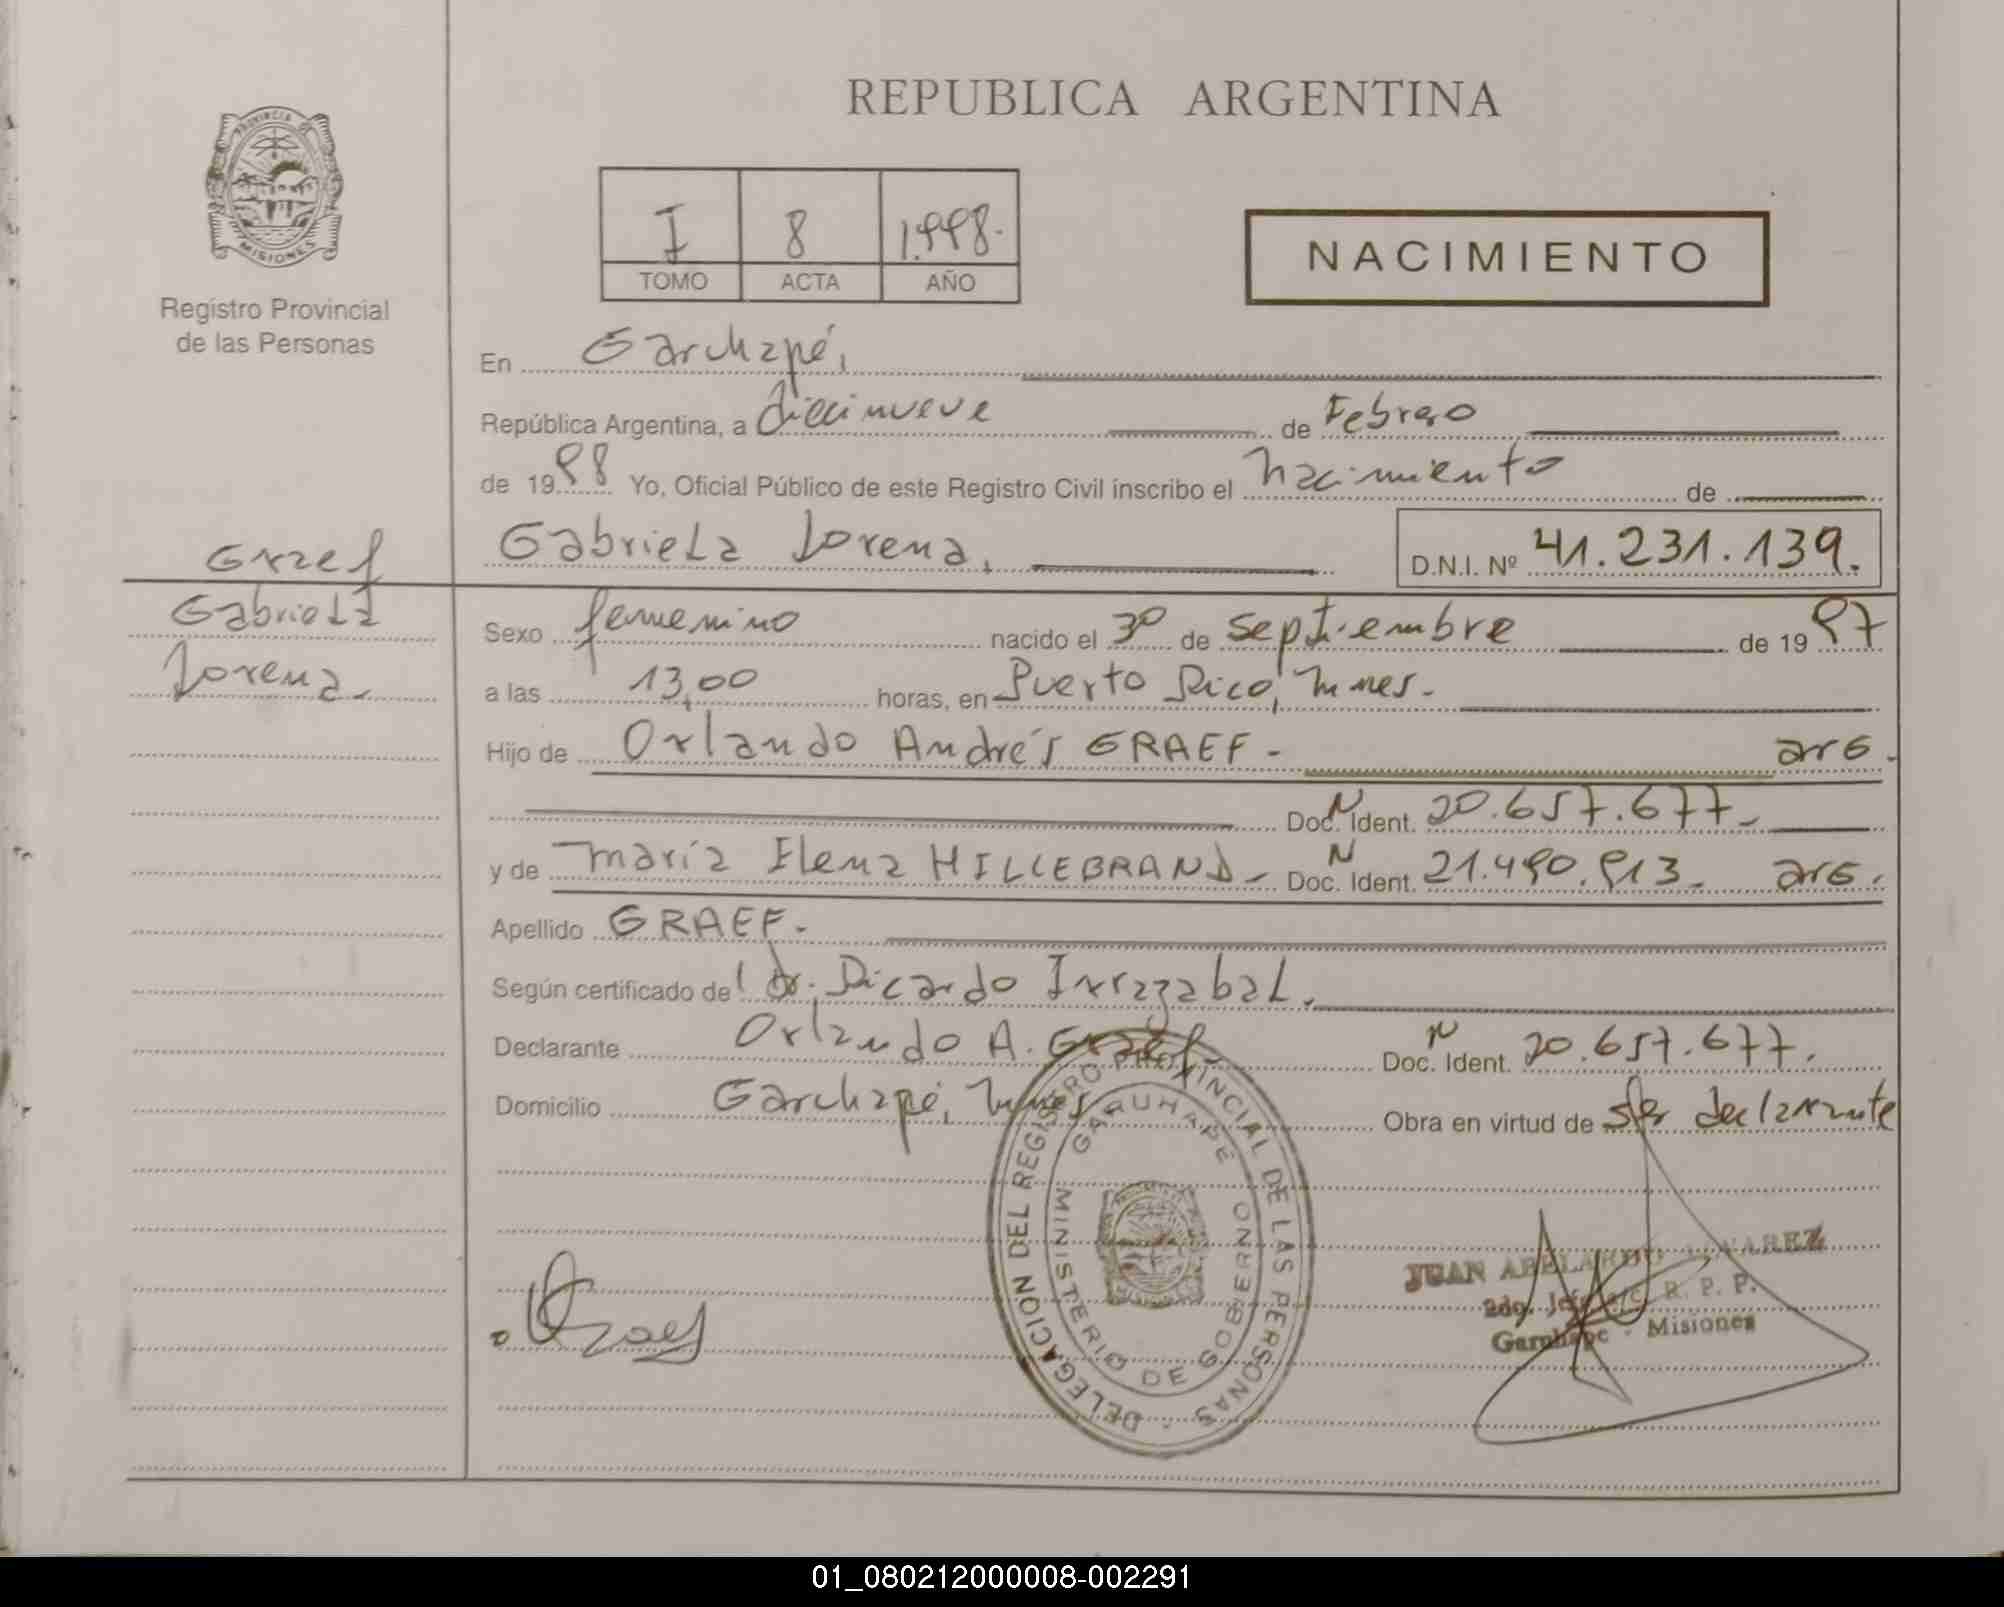 REPUBLICA ARGENTINA
PROVINCIA DE
MISIONES
Registro Provincial
de las Personas
I 8 1.998.
TOMO ACTA AÑO
NACIMIENTO
En Garuhapé,
República Argentina, a diecinueve de Febrero
de 1998 Yo, Oficial Público de este Registro Civil inscribo el nacimiento de
Graef
Gabriela Lorena, D.N.I. Nº 41.231.139.
Gabriela
Lorena.
Sexo femenino nacido el 30 de septiembre de 1997
a las 13,00 horas, en Puerto Rico, Mnes.
Hijo de Orlando Andrés GRAEF - arg.
Doc. N Ident. 20.657.677.-
y de María Elena HILLEBRAND - Doc. N Ident. 21.490.913. arg.
Apellido GRAEF.
Según certificado del dr. Ricardo Irrazabal.
Declarante Orlando A. Graef Doc. N Ident. 20.657.677.
Domicilio Garuhapé, Mnes Obra en virtud de ser declarante
DELEGACION DEL REGISTRO PROVINCIAL DE LAS PERSONAS
GARUHAPE
MINISTERIO DE GOBIERNO
Graef
JUAN ABELARDO
2do. Jefe R. P. P.
Garuhape - Misiones
01_080212000008-002291